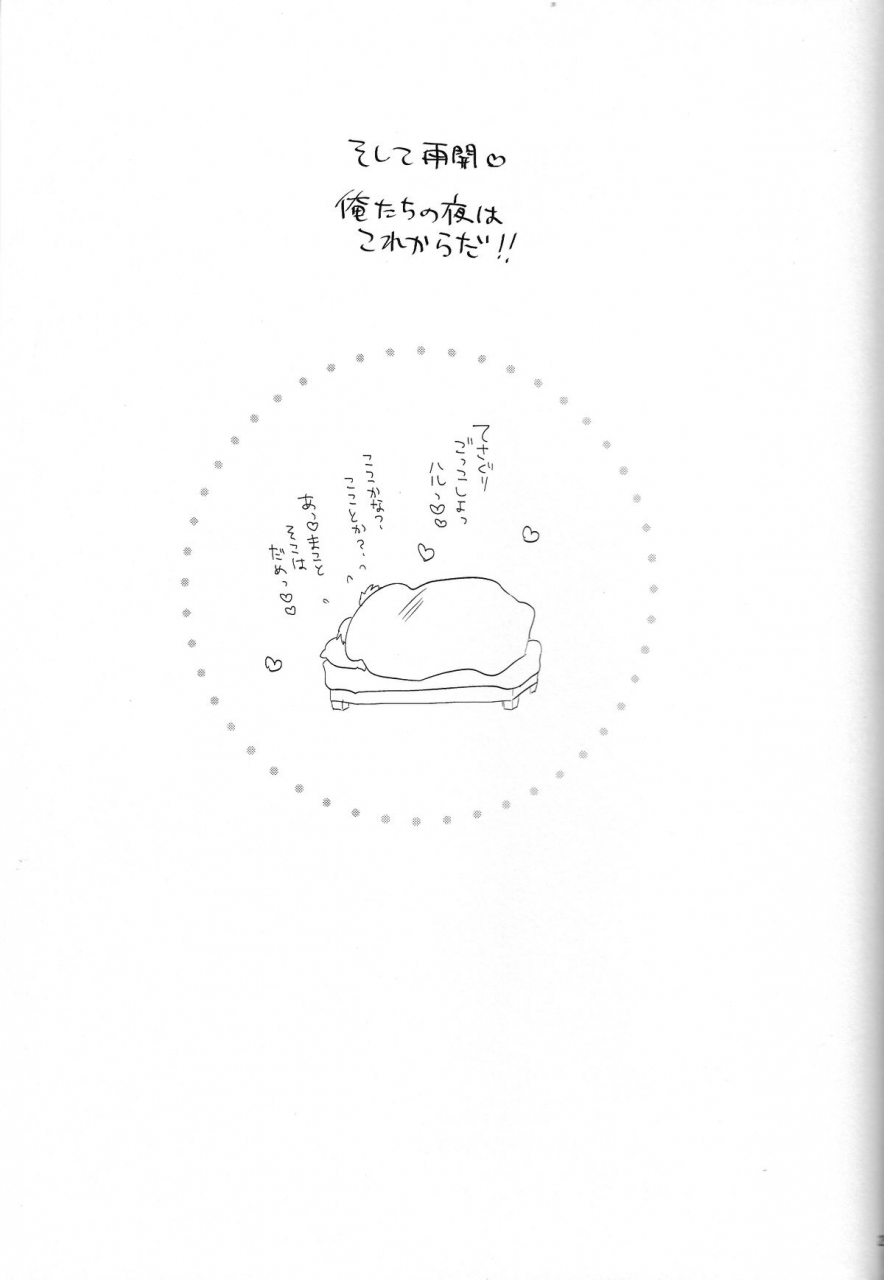 そして再開♡
俺たちの夜は
これからだ!!
てさぐり
ごっこしよっ
ハルっ♡♡
ここかなっ、
こことか?、
あっ♡まこと
そこは
だめっ♡♡